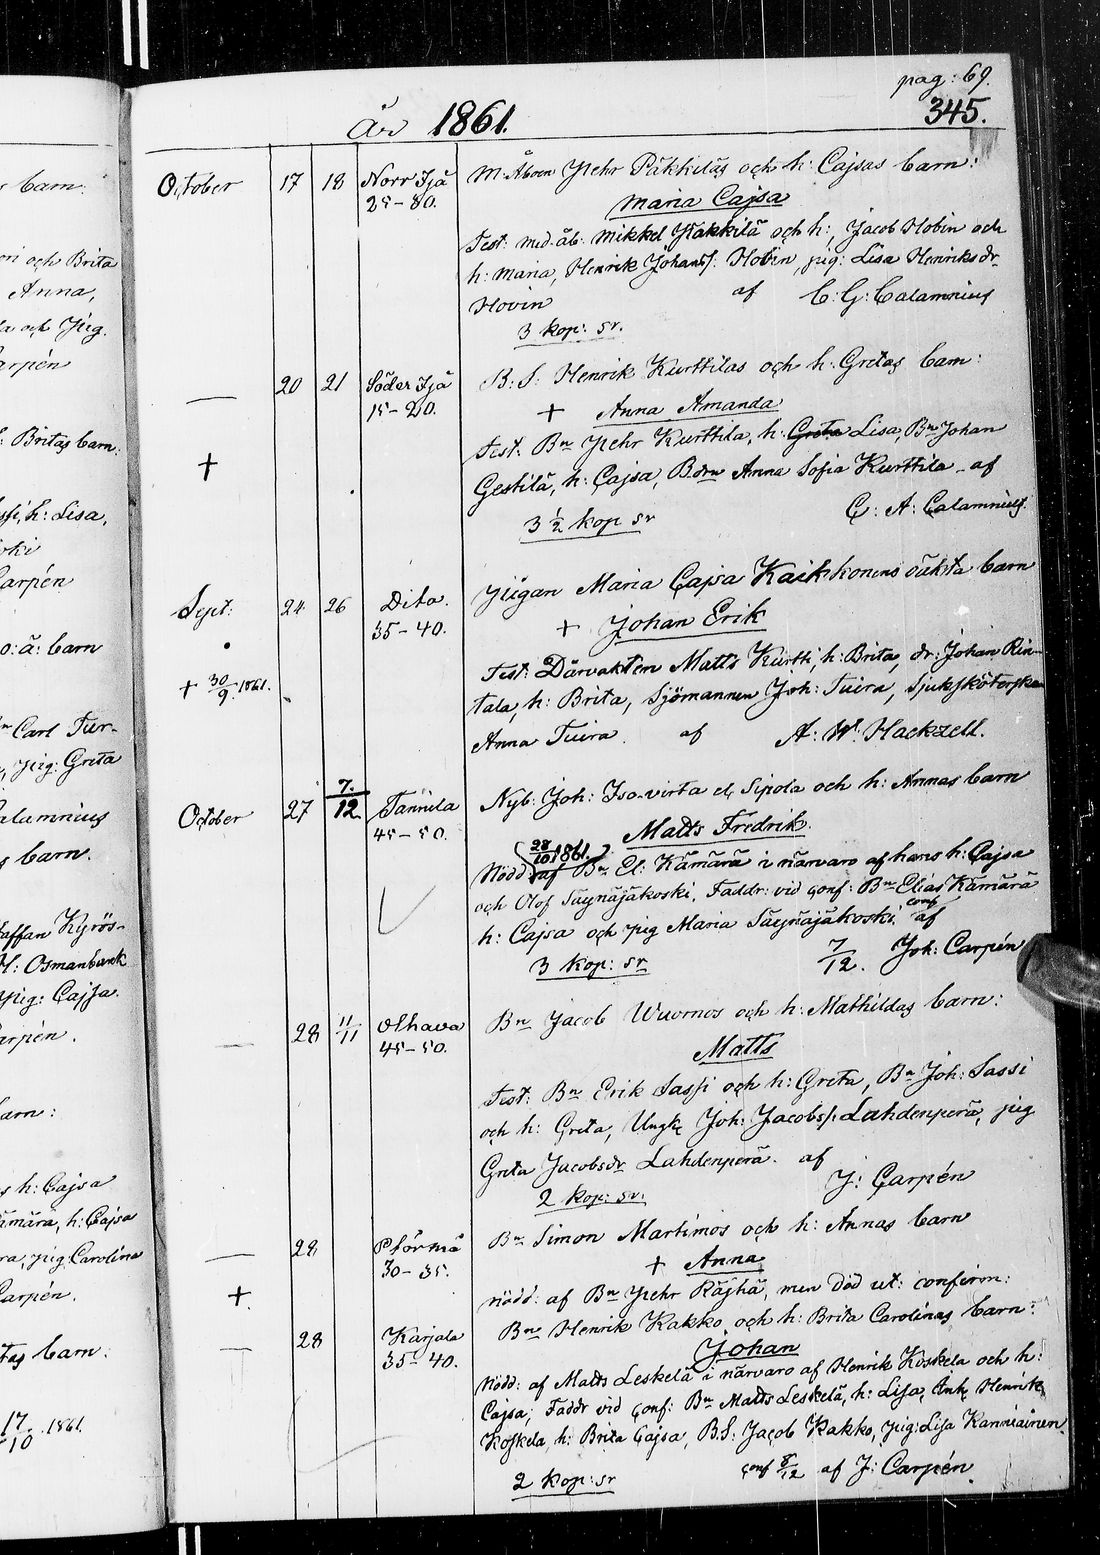 pag: 69.
År 1861. 345.
October 17 18 Norr Ijå 25-30. M: Åboen Pehr Päkkiläs och h: Cajsas barn:
Maria Cajsa
Test: med.åb: Mikkel Päkkilä och h:, Jacob Hobin och
h: Maria, Henrik Johans: Hobin, pig: Lisa Henriksdr
Hovin af C: G: Calamnius
3 kop: sr.
— 20 21 Söder Ijå 15-20. B: S: Henrik Kurttilas och h: Gretas barn:
+ Anna Amanda
+ Test: Bn Pehr Kurttila, h: Greta Lisa, Bn Johan
Gestilä, h: Cajsa, Bdrn Anna Sofia Kurttila af
C: A: Calamnius
3 1/2 kop sr
Sept: 24 26 Dito. 35-40. Pigan Maria Cajsa Kaikkonens oäkta barn
+ Johan Erik
+ 30/9 1861. Test: Dårvakten Matts Kurtti, h: Brita, dr: Johan Rin-
tala, h: Brita, Sjömannen Joh: Tuira, Sjuksköterskan
Anna Tuira. af A: W: Hackzell.
October 27 7/12 Tannila 45-50. Nyb: Joh: Iso-virta el Sipola och h: Annas barn
Matts Fredrik.
(28/10 1861.)
Nödd: af Bn El: Kämärä i närvaro af hans h: Cajsa
och Olof Säynäjäkoski, Faddr: vid conf: Bn Elias Kämärä
h: Cajsa och pig Maria Säynäjäkoski. conf af
7/12. Joh: Carpén
3 kop: sr
— 28 11/11 Olhava 45-50. Bn Jacob Wuornos och h: Mathildas barn:
Matts
Test: Bn Erik Sassi och h: Greta, Bn Joh: Sassi
och h: Greta, Ungk Joh: Jacobss: Lahdenperä, pig
Greta Jacobsdr Lahdenperä. af
J: Carpén
2 kop: sr:
— 28 Pbörmå 30-35. Bn Simon Martimos och h: Annas barn
+ Anna
+ nödd: af Bn Pehr Räjhä, men död ut: confirm:
— 28 Karjala 35-40. Bns Henrik Kakko och h: Brita Carolinas barn:
Johan
Nödd: af Matts Leskelä i närvaro af Henrik Koskela och h:
Cajsa; Faddr vid conf: Bn Matts Leskelä, h: Lisa, Henrik
Koskela, h: Brita Cajsa, B.S: Jacob Kakko, pig: Lisa Kanniainen
conf 8/12 af J: Carpén.
2 kop: sr